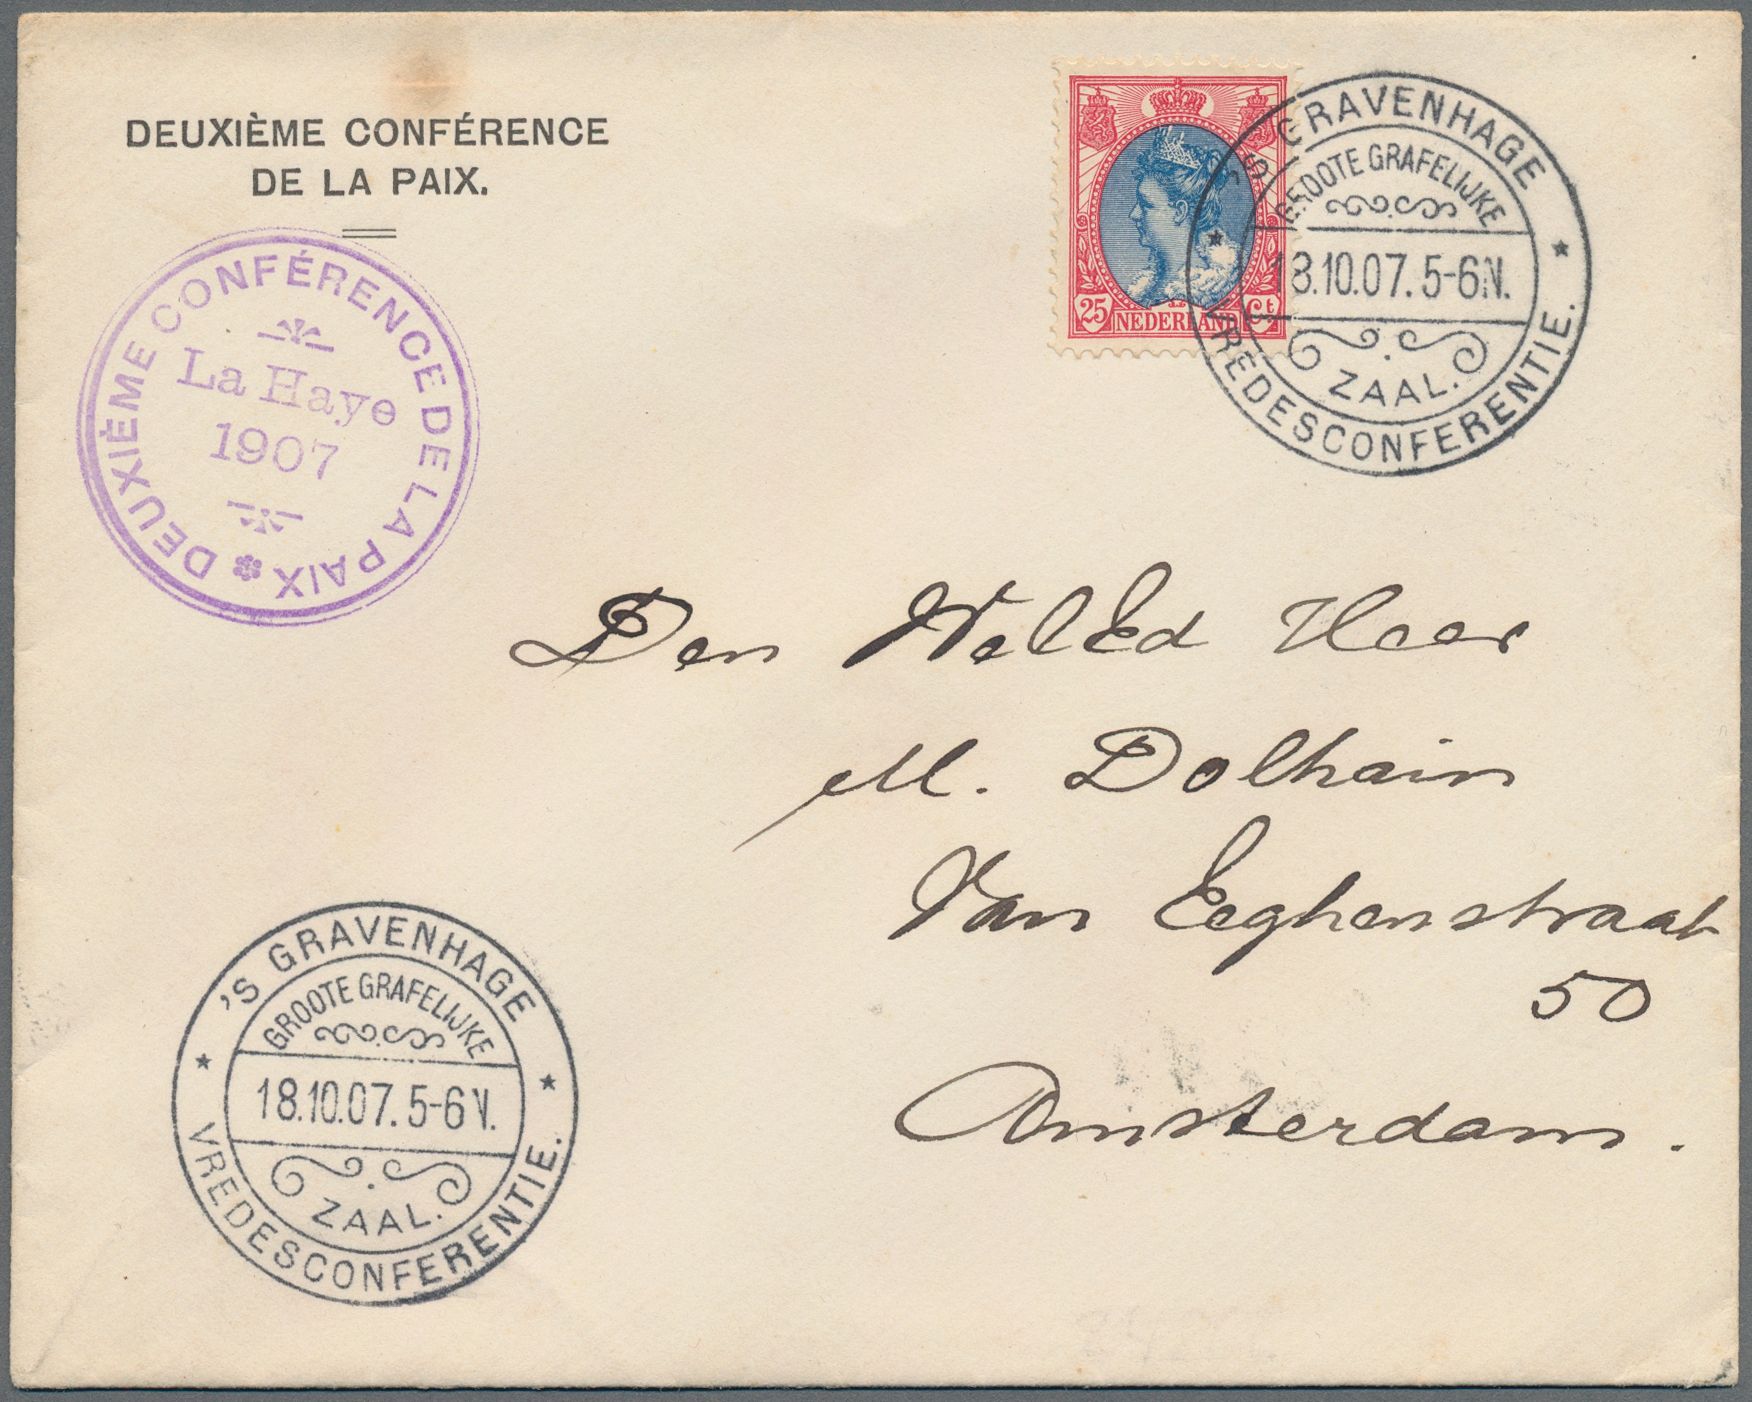 DEUXIÈME CONFÉRENCE
DE LA PAIX.
DEUXIÈME CONFÉRENCE DE LA PAIX
La Haye
1907
25 NEDERLAND Ct
'S GRAVENHAGE
GROOTE GRAFELIJKE
18.10.07. 5-6 N.
ZAAL.
VREDESCONFERENTIE.
Den WelEd Heer
M. Dolhain
Van Eeghenstraat
50
Amsterdam.
'S GRAVENHAGE
GROOTE GRAFELIJKE
18.10.07. 5-6 N.
ZAAL.
VREDESCONFERENTIE.